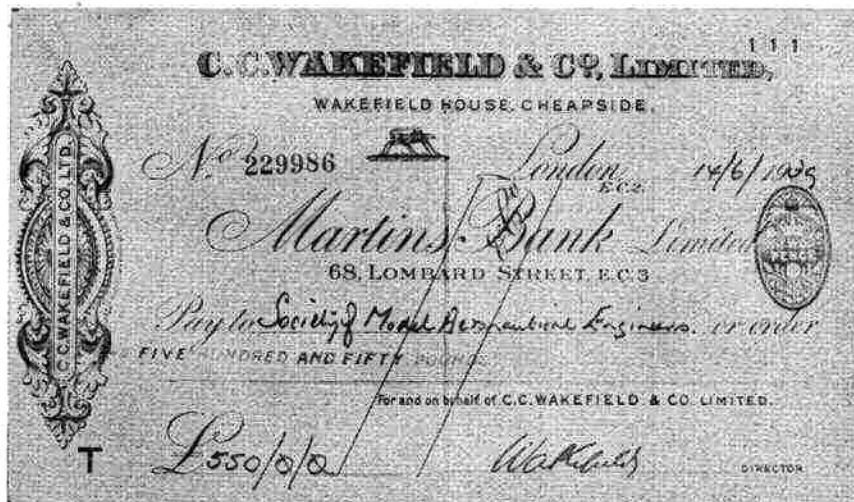 111
C.C. WAKEFIELD & CO, LIMITED,
WAKEFIELD HOUSE, CHEAPSIDE.
No 229986 London, E.C.2. 14/6/1939
Martins Bank Limited
68, LOMBARD STREET, E.C.3
PENCE
Pay to Society of Model Aeronautical Engineers. or order
FIVE HUNDRED AND FIFTY POUNDS
For and on behalf of C.C. WAKEFIELD & CO. LIMITED.
£550/0/0 Wakefield DIRECTOR
C.C. WAKEFIELD & CO. LTD.
T